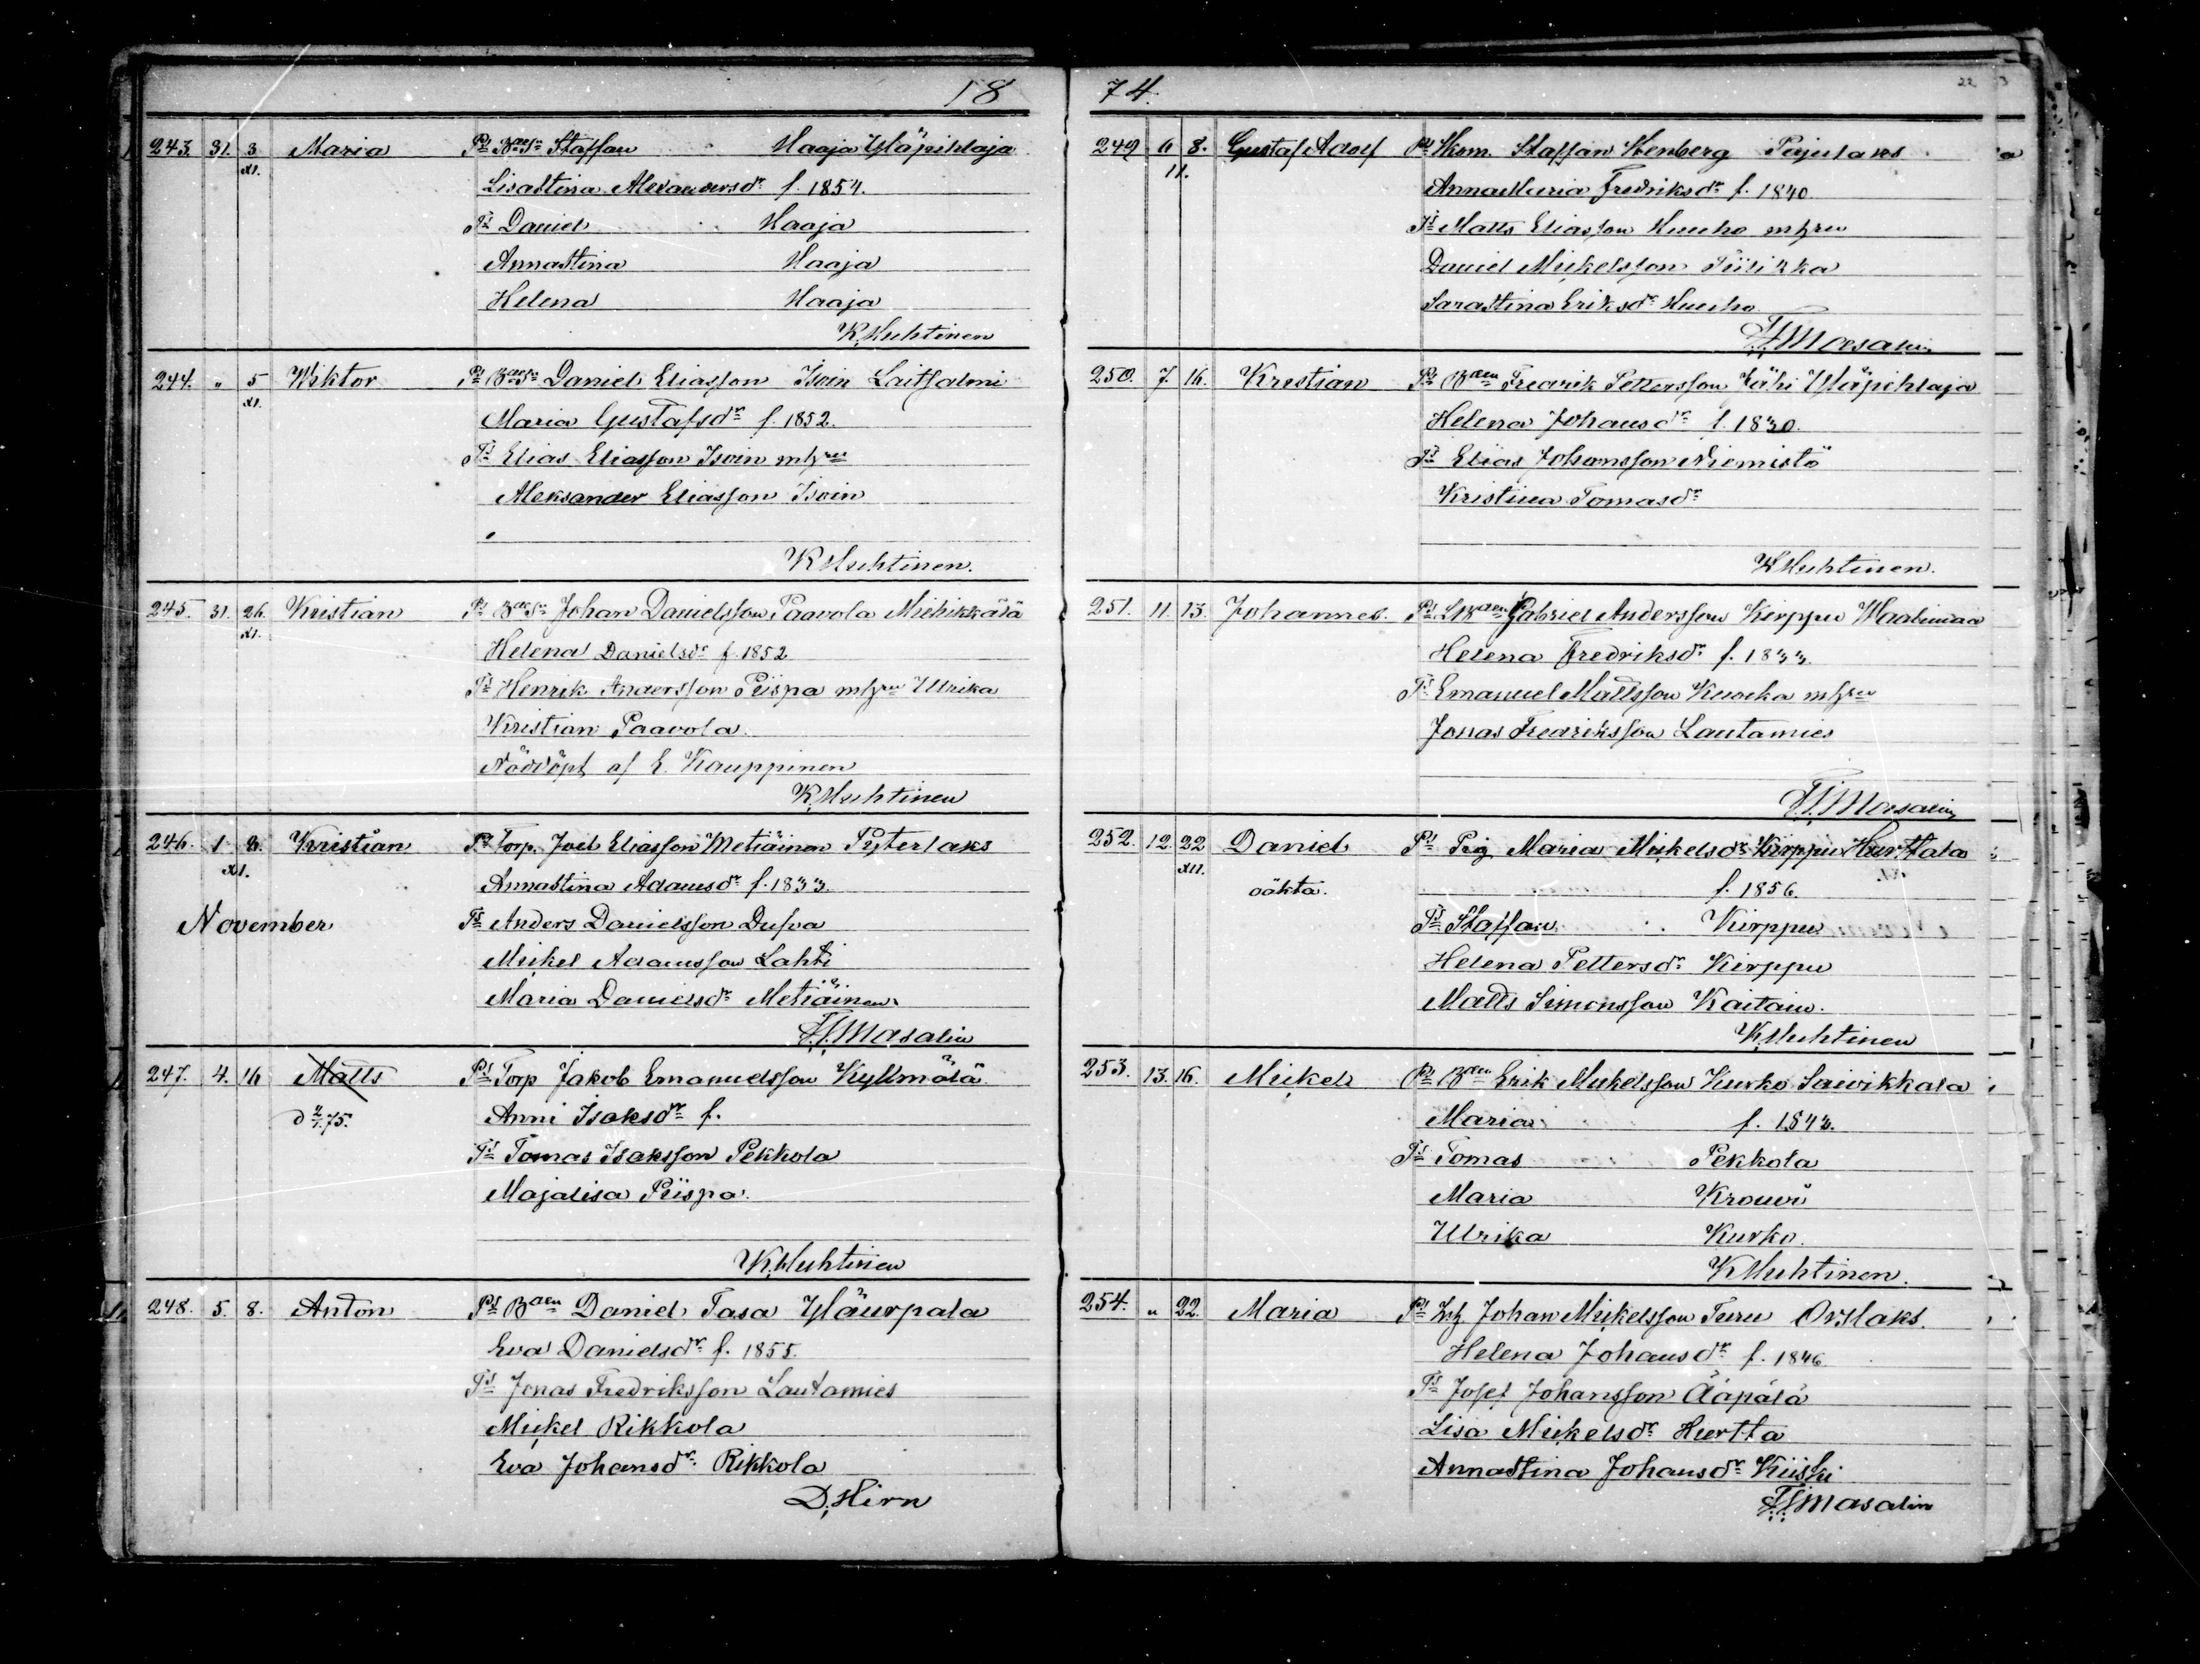 18
243. 31. 3 Maria Pr Staffan Haaja Yläpihlaja
XI. Lisastina Alexandersdr f. 1854.
Ts Daniel Haaja
Annastina Haaja
Helena Haaja
K. Huhtinen
244. " 5 Wiktor Pr Daniel Eliasson Isoin Laitsalmi
XI. Maria Gustafsdr f. 1852.
Ts Elias Eliasson Isoin mhru
Aleksander Eliasson Isoin
K. Huhtinen.
245. 31. 26. Kristian Pr Johan Danielsson Paavola Miehikkälä
XI. Helena Danielsdr f. 1852
Ts Henrik Andersson Piispa mhru Ulrika
Kristian Paavola.
Nöddöpt af E. Kauppinen
K. Huhtinen
246. 1 8. Kristian Pr Torp. Joel Eliasson Metiäinen Pyterlaks
XI. Annastina Adamsdr f. 1833.
November Ts Anders Danielsson Dufva
Mickel Adamsson Lahti
Maria Danielsdr Metiäinen
F.F. Masalin
247. 4. 16 Matts Pr Torp Jakob Emanuelsson Kyllmälä
d 75. Anni Isaksdr f.
Ts Tomas Isaksson Pekkola
Majalisa Piispa.
K. Huhtinen
248. 5. 8. Anton Pr Baen Daniel Tasa Yläurpala
Eva Danielsdr f. 1855.
Ts Jonas Fredriksson Lautamies
Mickel Rikkola
Eva Johansdr Rikkola
D. Hirn
74.
22
249 6 8. Gustaf Adolf Pr Staffan Stenberg Pajulaks
11. Anna Maria Fredriksdr f. 1840.
Ts Matts Eliasson Huuho mhru
Daniel Mickelsson Tiilikka
Sarastina Eriksdr Huuho
F.F. Masalin
250. 7. 16. Kristian Pr Baen Fredrik Pettersson Jähi Yläpihlaja
Helena Johansdr f. 1830.
Ts Elias Johansson Niemistö
Kristina Tomasdr
K Huhtinen.
251. 11. 13. Johannes. Pr Gabriel Andersson Kirppu Waalimaa
Helena Fredriksdr f. 1833.
Ts Emanuel Mattsson Kuokka mhru
Jonas Fredriksson Lautamies
F.F. Masalin
252. 12. 22 Daniel Pr Pig Maria Mickelsdr Kirppu Hurttala
XII. oäkta. f. 1856.
Ts Staffan Kirppu
Helena Pettersdr Kirppu
Matts Simonsson Kaitain.
K. Huhtinen
253. 13. 16. Mickel Pr Baen Erik Mickelsson Kurko Saivikkala
Maria f. 1843.
Ts Tomas Pekkola
Maria Krouvi
Ulrika Kurko.
K Huhtinen.
254. " 22. Maria Pr Johan Mickelsson Turu Orslaks.
Helena Johansdr f. 1846
Ts Josef Johansson Ääpälä
Lisa Mickelsdr Hurtta
Annastina Johansdr Kiiski
F.F. Masalin